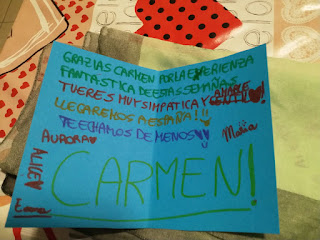 GRAZIAS CARMEN POR LA EXPERIENZA
FANTASTICA DE ESTAS SEMAÑAS
TU ERES MUY SIMPATICA Y
AMABLE
LLEGAREMOS A ESPAÑA!!
TE ECHAMOS DE MENOS!
Maria
AURORA
ALICE
CARMEN!